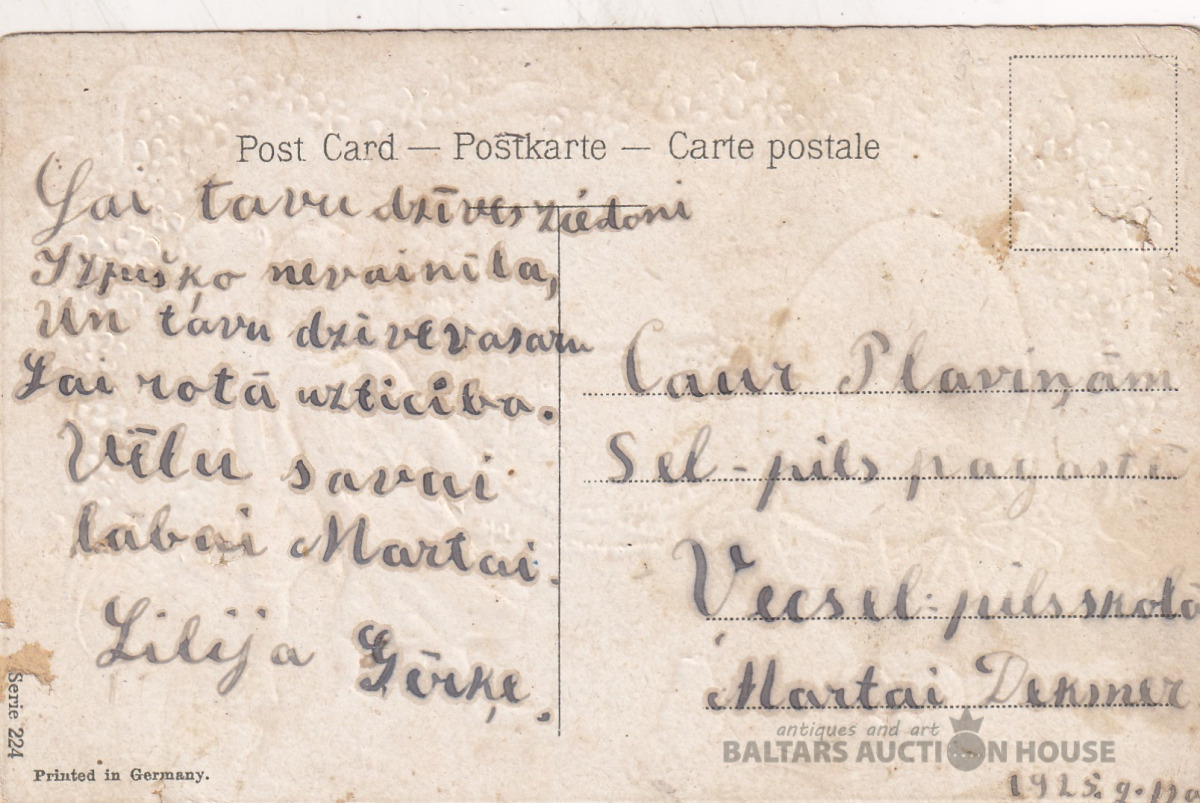 Post Card — Postkarte — Carte postale
Lai tavu dzīves ziedoni
Izpuško nevainība,
Un tavu dzīvevasaru
Lai rotā uzticība.
Vēlu savai
labai Martai.
Lilija Gērķe.
Caur Plaviņām
Sel-pils pagastā
Vecsel-pils skolā
Martai Deksner
1925. g.
Serie 224
Printed in Germany.
antiques and art
BALTARS AUCTION HOUSE